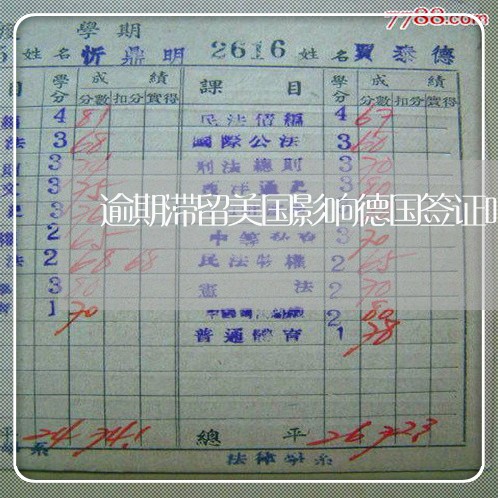 7788.com
學期
姓名 忻鼎明 2616 姓名 賈泰德
目 學分 成績 課目 學分 成績
分數 扣分 實得 分數 扣分 實得
4 81 民法債編 4 67
法 3 68 國際公法 3 60
3 刑法總則 3 70
3 75 西洋通史 3
逾期滞留美国影响德国签证
2 65 3 70
法 2 68 68 民法物權 2 65
3 80 憲法 2 70
1 70 2 80
普通體育 1 78
平 24 74.1 總平 26 72.3
系 法律學系